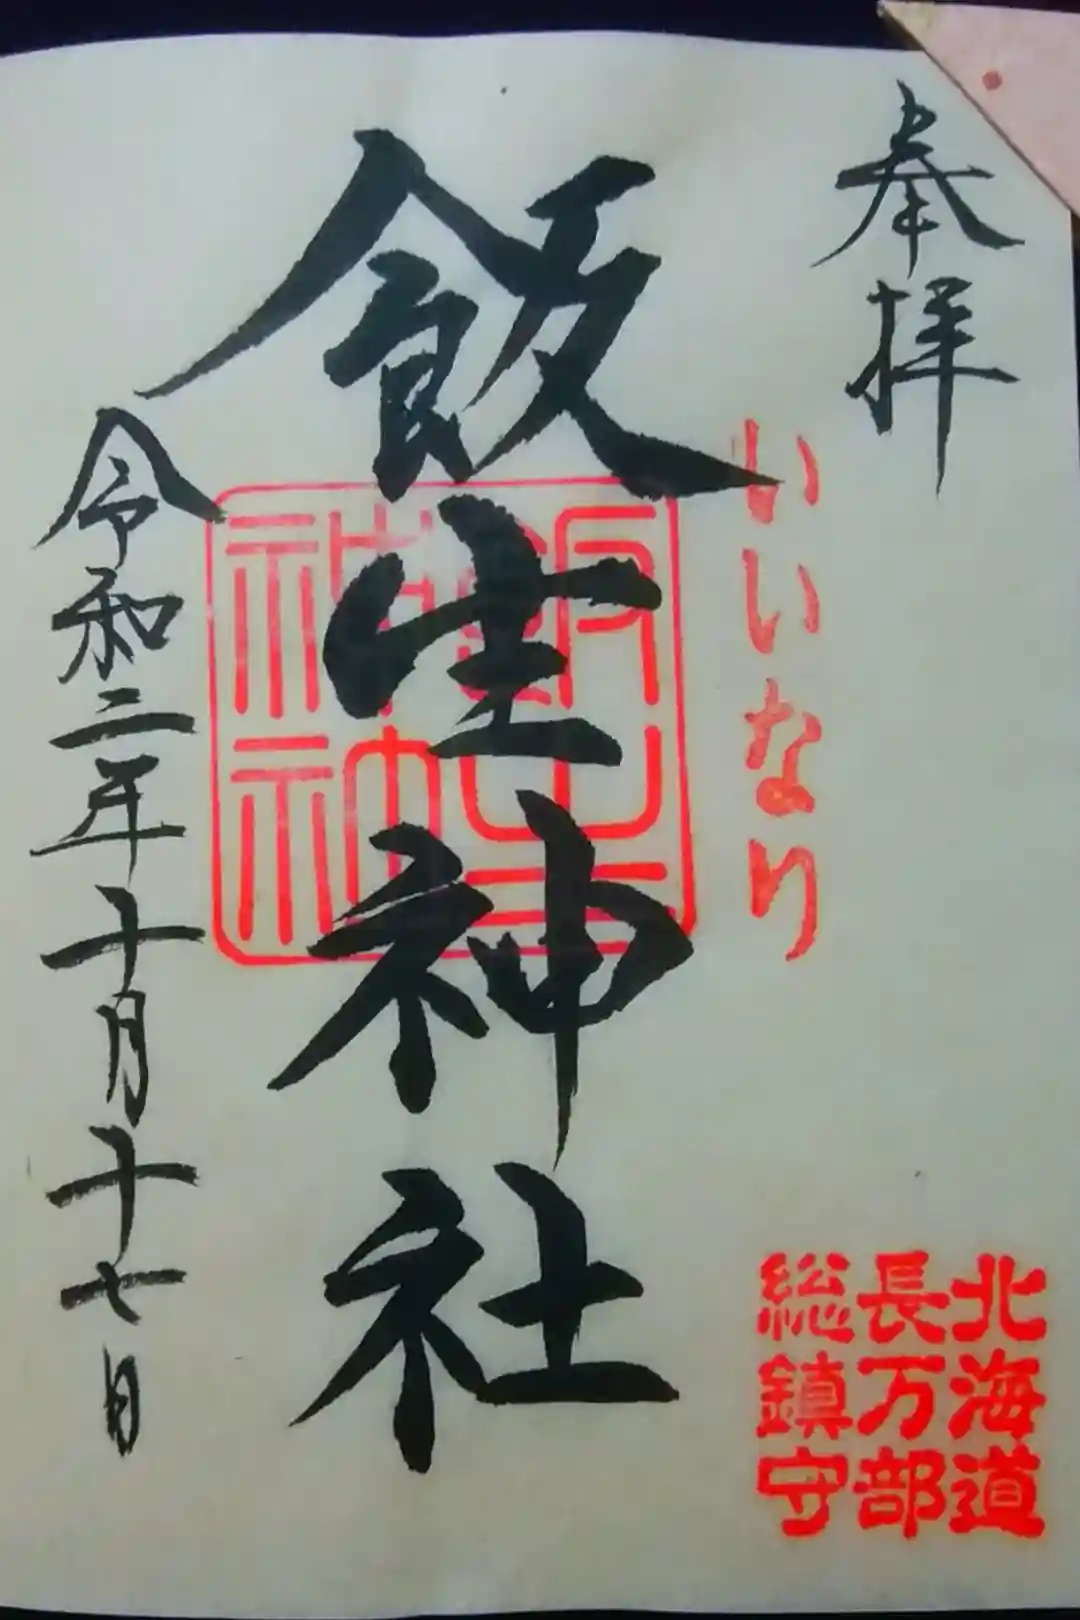 奉拝
いいなり
飯生神社
飯生
神社
令和二年十月十七日
北海道
長万部
総鎮守